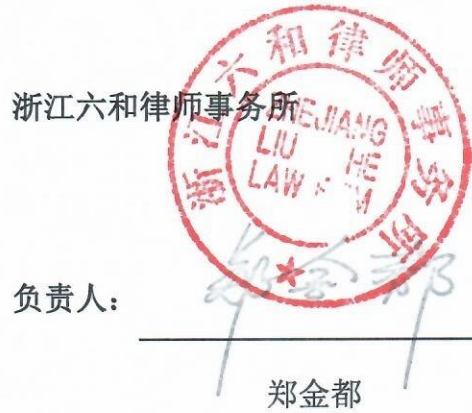 浙江六和律师事务所
浙江六和律师事务所
ZHEJIANG
LIU HE
LAW
负责人：
郑金都
郑金都